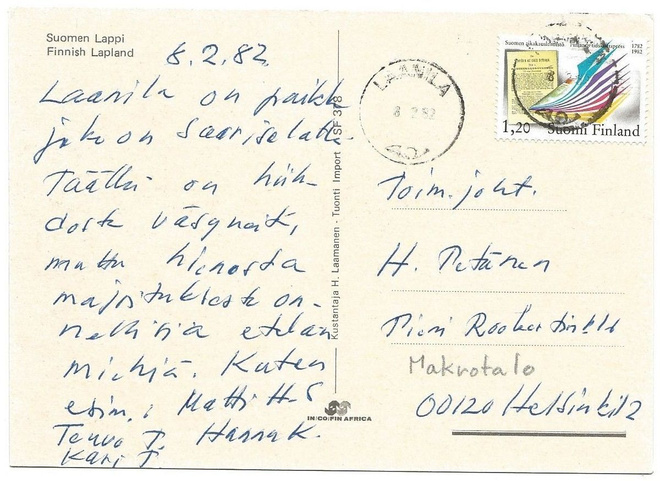 Suomen Lappi
Finnish Lapland
8.2.82
Laanila on paikka
joka on Saariselällä.
Täällä on hiih-
dosta väsyneitä,
mutta hienosta
majoituksesta on-
nellisia etelän
miehiä. Kuten
esim. Matti H-S
Teuvo T. Hanna K.
Kari T
Kustantaja H. Laamanen - Tuonti Import JSF 378
IN:CO:FIN AFRICA
LAANILA
8 2 82
Suomen aikakauslehdistö
1782
1982
1,20 Suomi Finland
Toim. joht.
H. Petänen
Pieni
Makrotalo
00120 Helsinki 12